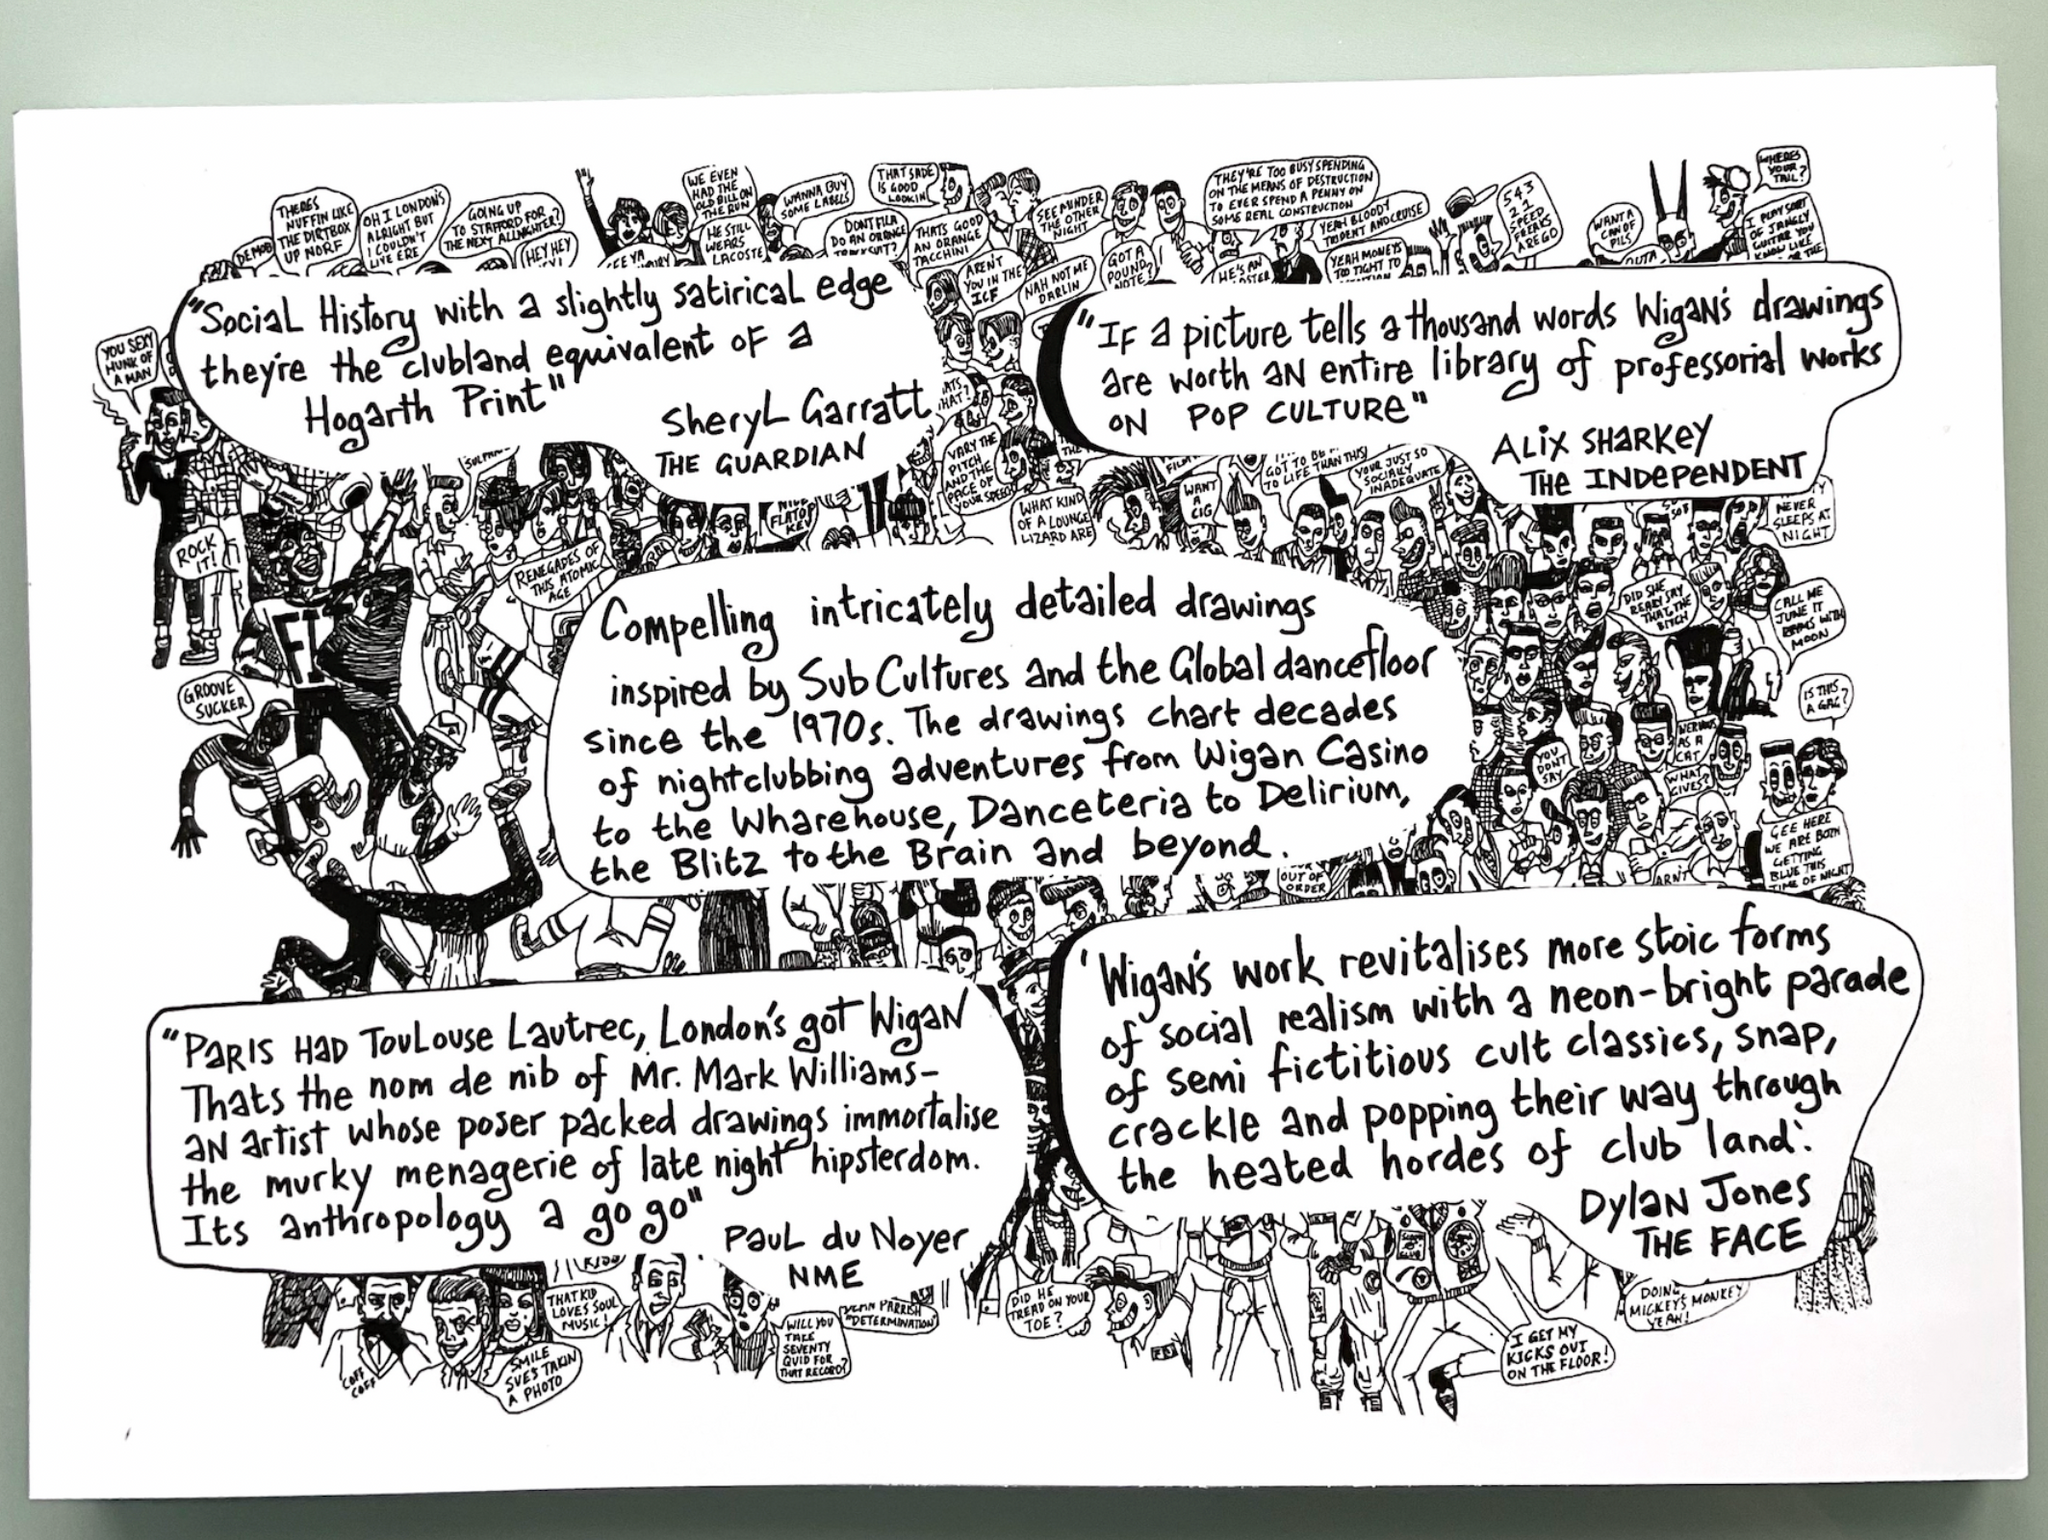 THERES
NUFFIN LIKE
THE DIRTBOX
UP NORF
OH I LONDON'S
ALRIGHT BUT
I COULDN'T
LIVE ERE
GOING UP
TO STAFFORD FOR
THE NEXT ALLNIGHTER?
HEY HEY
WE EVEN
HAD THE
OLD BILL ON
THE RUN
HE STILL
WEARS
LACOSTE
WANNA BUY
SOME LABELS
THAT SADE
IS GOOD
LOOKIN
DONT FILA
DO AN ORANGE
THATS GOOD
AN ORANGE
TACCHINI
AREN'T
YOU IN THE
ICF
SEE MINDER
THE OTHER
NIGHT
NAH NOT ME
DARLIN
GOT A
POUND
NOTE?
THEY'RE TOO BUSY SPENDING
ON THE MEANS OF DESTRUCTION
TO EVER SPEND A PENNY ON
SOME REAL CONSTRUCTION
YEAH BLOODY
TRIDENT AND CRUISE
HE'S AN
YEAH MONEYS
TOO TIGHT TO
5 4 3
2 1
SPEED
FREAKS
ARE GO
WANT A
CAN OF
PILS
WHERES
YOUR
TAIL?
I PLAY SORT
OF JANGLY
GUITAR YOU
KNOW LIKE
YOU SEXY
HUNK OF
A MAN
"Social History with a slightly satirical edge
they're the clubland equivalent of a
Hogarth Print"
Sheryl Garratt
THE GUARDIAN
"If a picture tells a thousand words Wigan's drawings
are worth an entire library of professorial works
on POP CULTURE"
ALIX SHARKEY
THE INDEPENDENT
VARY THE
PITCH
AND THE
PACE OF
YOUR SPEECH
WHAT KIND
OF A LOUNGE
LIZARD ARE
WANT
A
CIG
GOT TO BE
TO LIFE THAN THIS!
YOUR JUST SO
SOCIALLY
INADEQUATE
NEVER
SLEEPS AT
NIGHT
FLATOP
KEV
ROCK
IT!
RENEGADES OF
THIS ATOMIC
AGE
FI
GROOVE
SUCKER
Compelling intricately detailed drawings
inspired by Sub Cultures and the Global dancefloor
since the 1970s. The drawings chart decades
of nightclubbing adventures from Wigan Casino
to the Wharehouse, Danceteria to Delirium,
the Blitz to the Brain and beyond.
DID SHE
REALLY SAY
THAT THE
BITCH
CALL ME
JUNE IT
RHYMS WITH
MOON
IS THIS
A GAG?
NERVOUS
AS A
CAT
WHAT
GIVES?
YOU
DONT
SAY
GEE HERE
WE ARE BOTH
GETTING
BLUE THIS
TIME OF NIGHT
ARN'T
OUT OF
ORDER
"PARIS HAD Toulouse Lautrec, London's got Wigan
Thats the nom de nib of Mr. Mark Williams–
an artist whose poser packed drawings immortalise
the murky menagerie of late night hipsterdom.
Its anthropology a go go"
Paul du Noyer
NME
'Wigan's work revitalises more stoic forms
of social realism with a neon-bright parade
of semi fictitious cult classics, snap,
crackle and popping their way through
the heated hordes of club land'.
Dylan Jones
THE FACE
COFF
COFF
SMILE
SVE'S TAKIN
A PHOTO
THAT KID
LOVES SOUL
MUSIC!
WILL YOU
TAKE
SEVENTY
QUID FOR
THAT RECORD?
DEAN PARRISH
"DETERMINATION"
DID HE
TREAD ON YOUR
TOE?
I GET MY
KICKS OUT
ON THE FLOOR!
DOING
MICKEY'S MONKEY
YEAH!